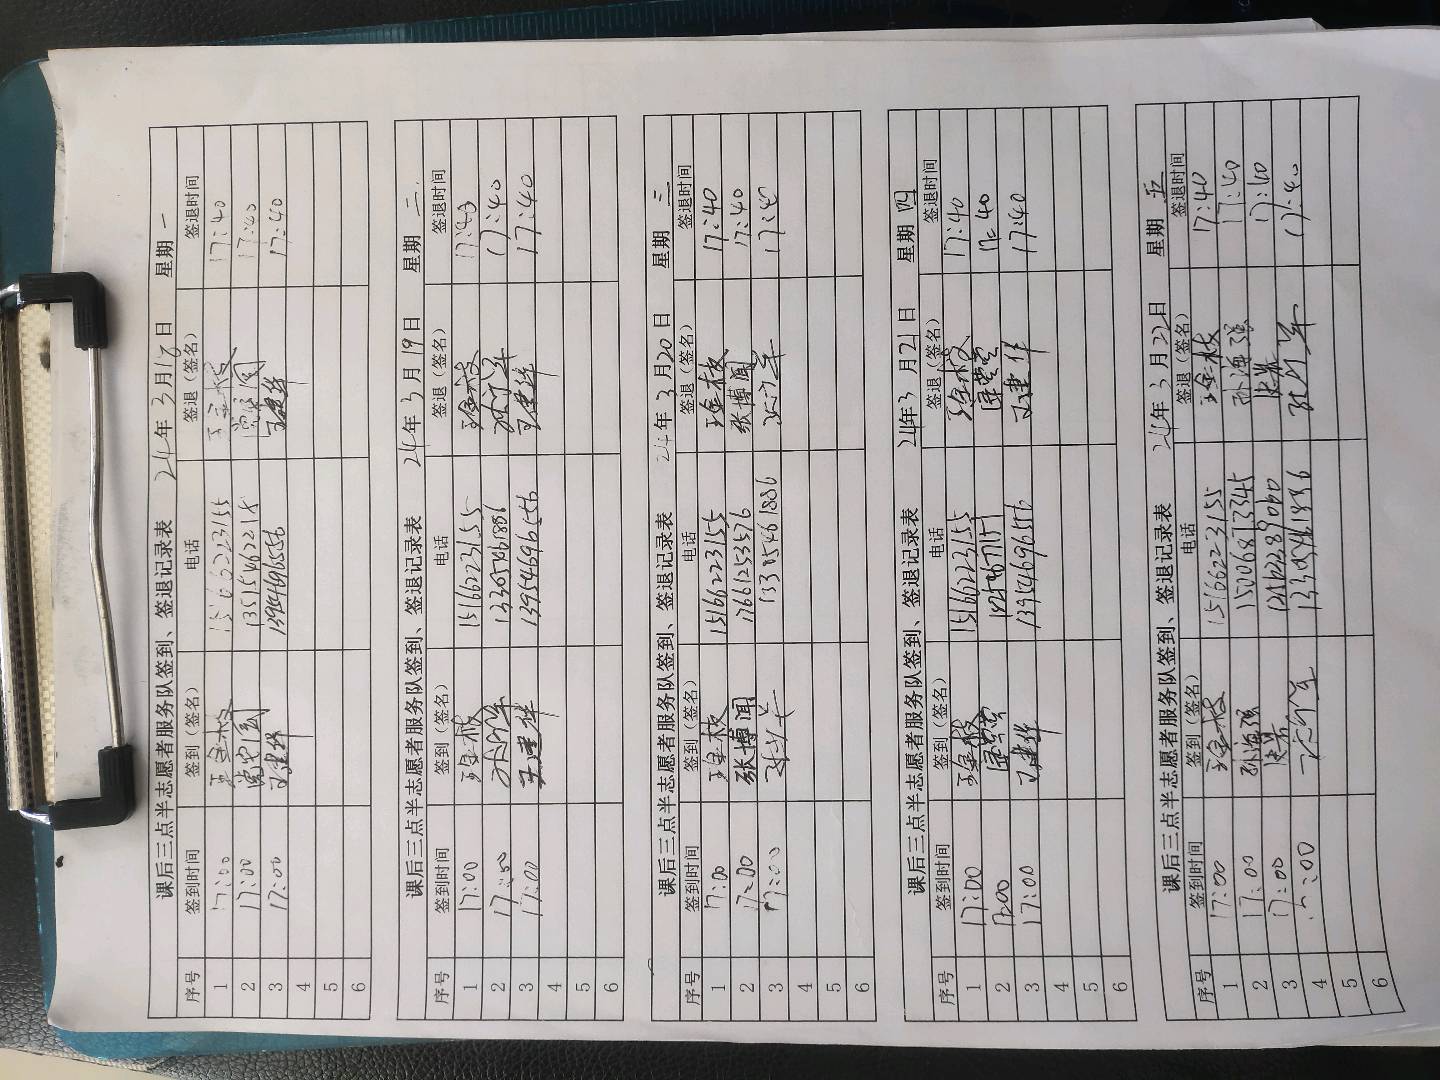 课后三点半志愿者服务队签到、签退记录表 24年3月18日 星期一
序号 签到时间 签到（签名） 电话 签退（签名） 签退时间
1 17:00 王金枝 15166223155 王金枝 17:40
2 17:00 13515462218 17:40
3 17:00 王建华 13954696556 王建华 17:40
4
5
6
课后三点半志愿者服务队签到、签退记录表 24年3月19日 星期二
序号 签到时间 签到（签名） 电话 签退（签名） 签退时间
1 17:00 王金枝 15166223155 王金枝 17:40
2 17:00 17:40
3 17:00 王建华 13954696556 王建华 17:40
4
5
6
课后三点半志愿者服务队签到、签退记录表 24年3月20日 星期三
序号 签到时间 签到（签名） 电话 签退（签名） 签退时间
1 17:00 王金枝 15166223155 王金枝 17:40
2 17:00 张博闻 17661253576 张博闻 17:40
3 17:00 13305461886 17:40
4
5
6
课后三点半志愿者服务队签到、签退记录表 24年3月21日 星期四
序号 签到时间 签到（签名） 电话 签退（签名） 签退时间
1 17:00 王金枝 15166223155 王金枝 17:40
2 17:00 17:40
3 17:00 王建华 13954696556 王建华 17:40
4
5
6
课后三点半志愿者服务队签到、签退记录表 24年3月22日 星期五
序号 签到时间 签到（签名） 电话 签退（签名） 签退时间
1 17:00 王金枝 15166223155 王金枝 17:40
2 17:00 孙海强 15006873345 孙海强 17:40
3 17:00 17:40
4 17:00 17:40
5
6